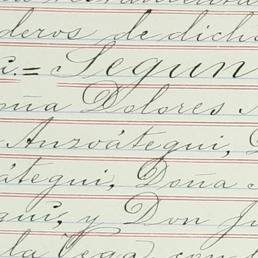 deros de dich
=Segun
ña Dolores
Anzoátegui,
átegui, Doña
gui, y Don Ju
la Vega, con l